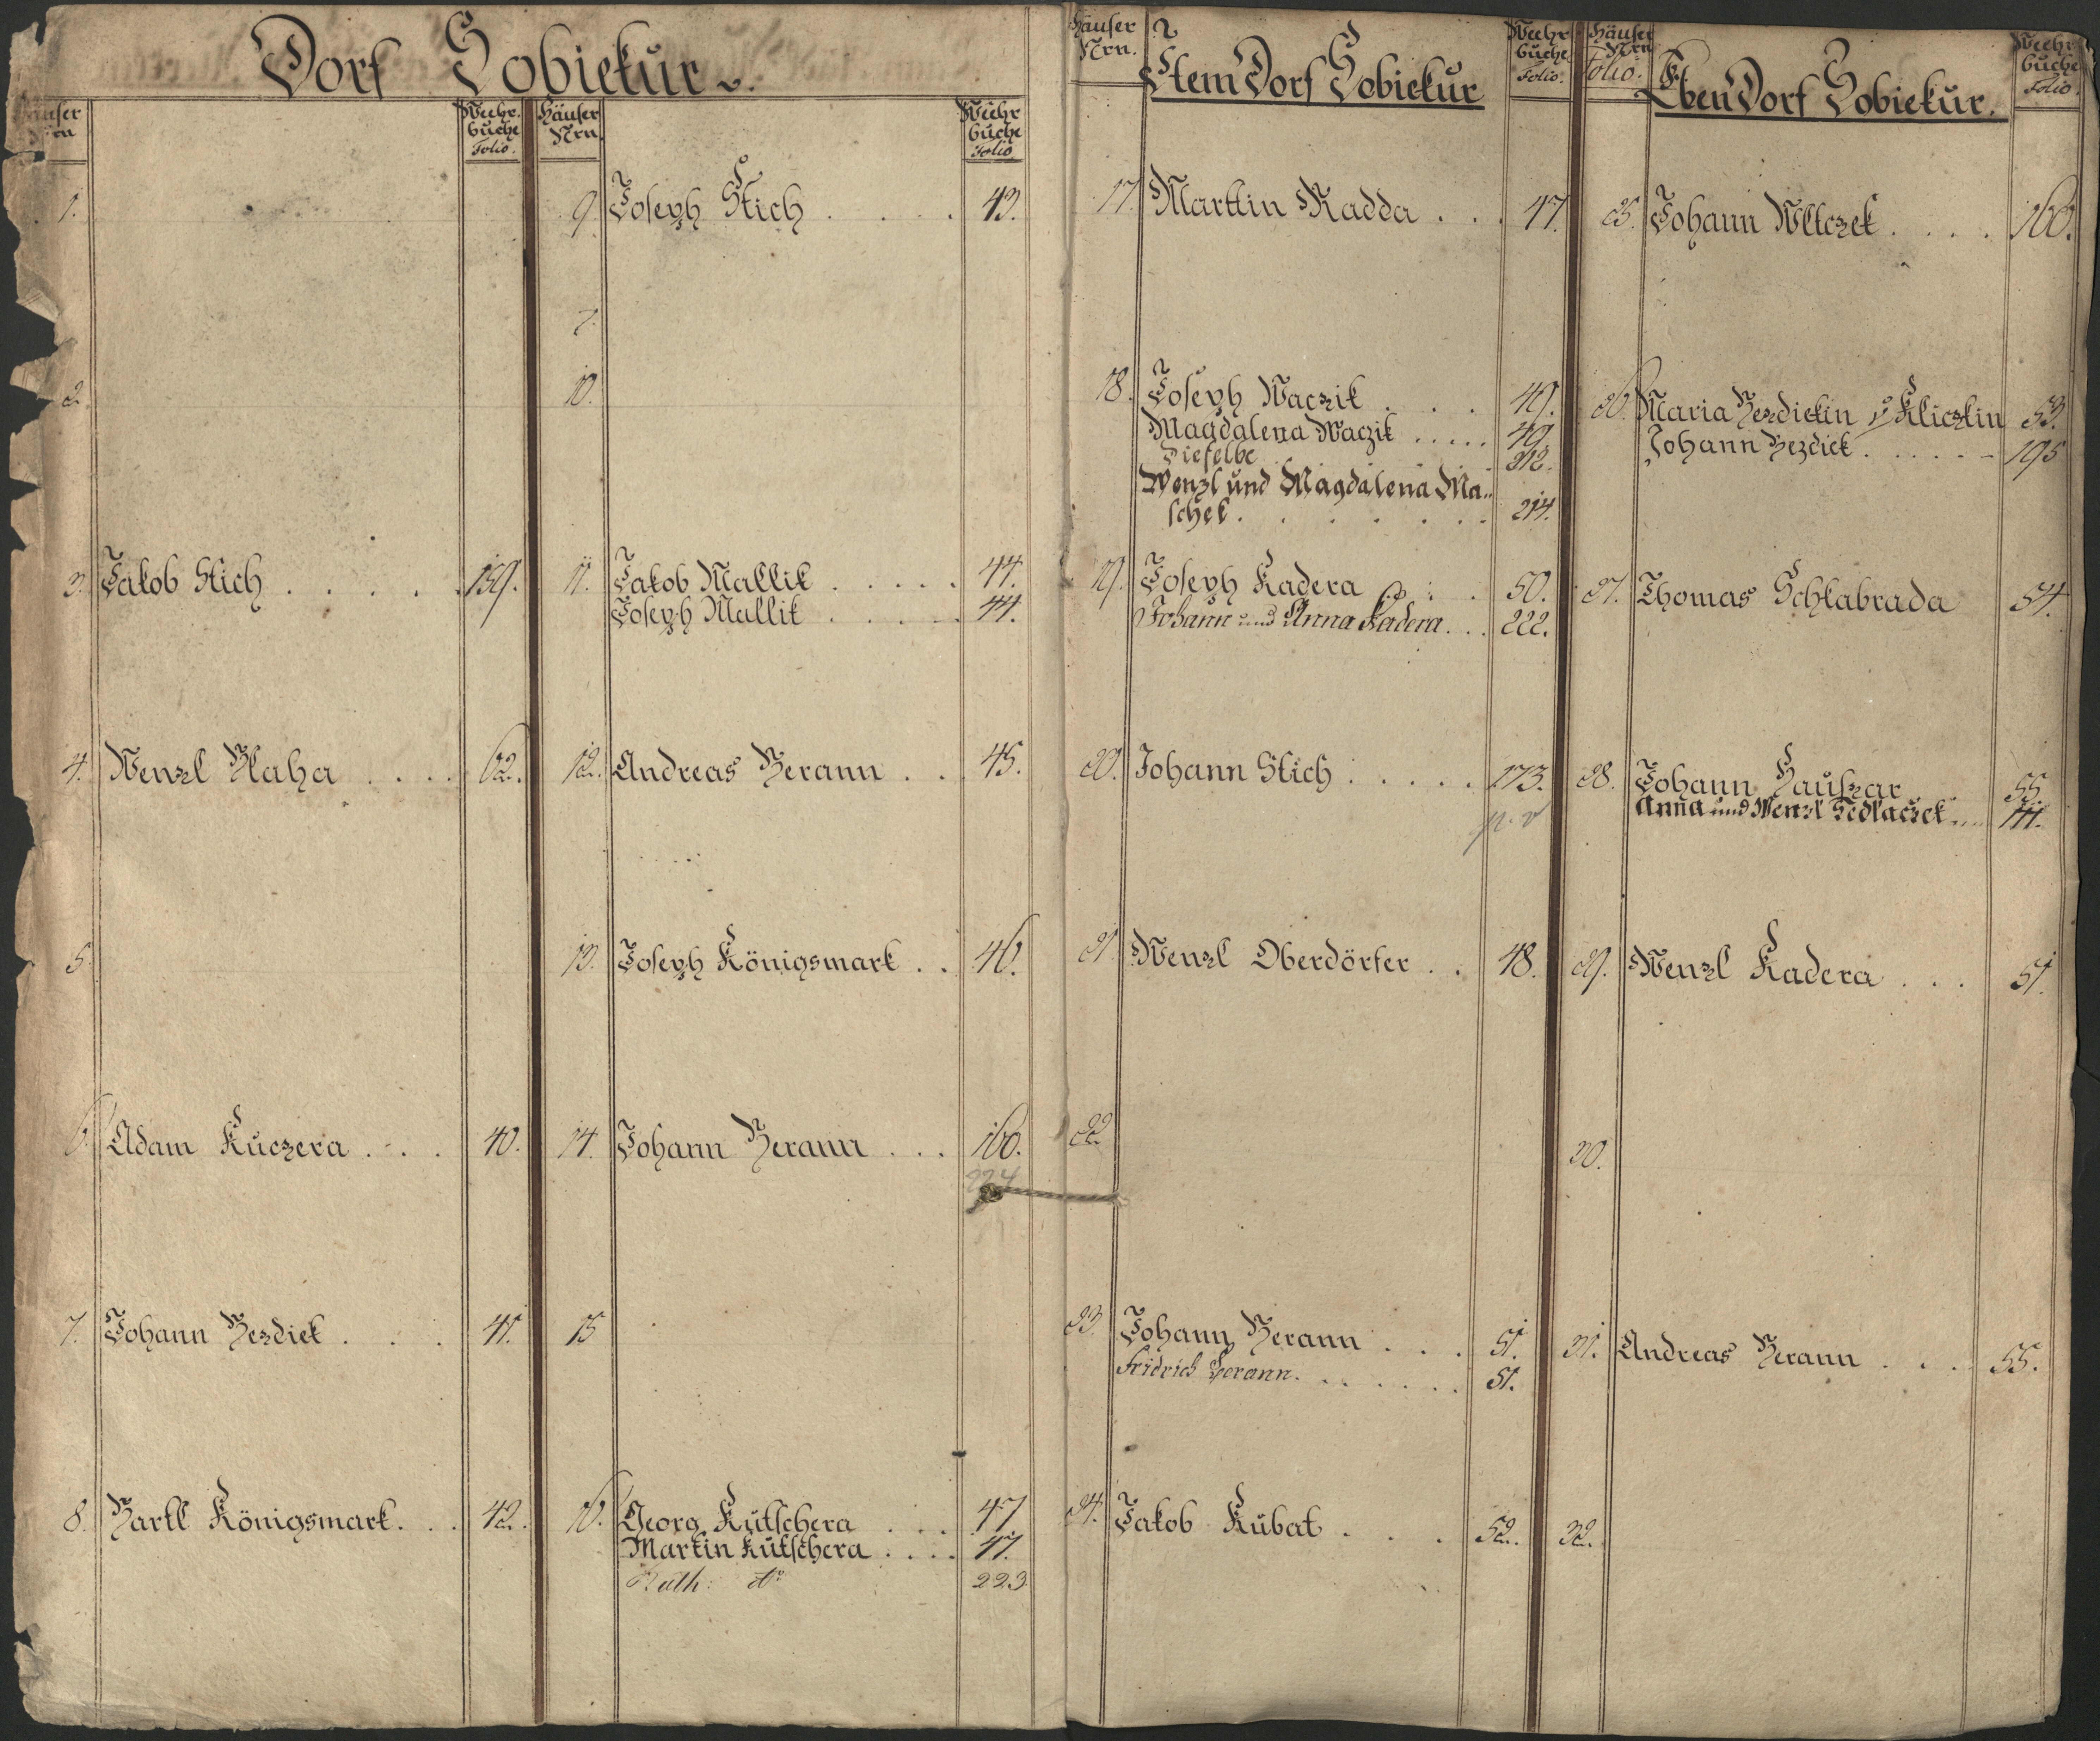 Dorf Sobiekur.
Häuser Nrn
Wehr buche Folio.
1.
2.
3. Jakob Stich . . . . . 159.
4. Wenzl Blaha . . . . 62.
5.
6. Adam Kuczera . . . 40.
7. Johann Bezdiek . . . 41.
8. Bartl Königsmark. . . 42.
Häuser Nrn.
Wehr buche Folio
9. Joseph Stich . . . . 43.
10.
11. Jakob Mallik . . . . . 44.
Joseph Mallik . . . . . 44.
12. Andreas Berann . . . 45.
13. Joseph Königsmark . . 46.
14. Johann Berann . . . 160.
224
15
16. Georg Kutschera . . . 47
Martin Kutschera . . . . 47.
Kath: dto 223
Häuser Nrn.
Item Dorf Sobiekur
Wehr buche Folio.
17. Martin Radda . . . 47.
18. Joseph Waczik . . . . 49.
Magdalena Waczik ..... 49.
Dieselbe . . 212.
Wenzl und Magdalena Ma=
schek . . . . . . . 214.
19. Joseph Kadera . . . 50.
Johann und Anna Kadera . . . 222.
20. Johann Stich . . . . . 173.
p. v
21. Wenzl Oberdörfer . . 48.
22.
23. Johann Berann . . . 51.
Fridrich Berann . . . . . . 51.
24. Jakob Kubat . . . . 52.
Häuser Nrn
Folio.
Eben Dorf Sobiekur.
Wehr buche Folio.
25. Johann Wlczek . . . . 160.
26. Maria Bezdiekin v Kliczkin 53.
Johann Bezdiek . . . . . . 195
27. Thomas Schlabrada 54.
28. Johann Hauszar 55.
Anna und Wenzl Sedlaczek .... 141.
29. Wenzl Kadera . . . 51.
30.
31. Andreas Berann . . . 55.
32.